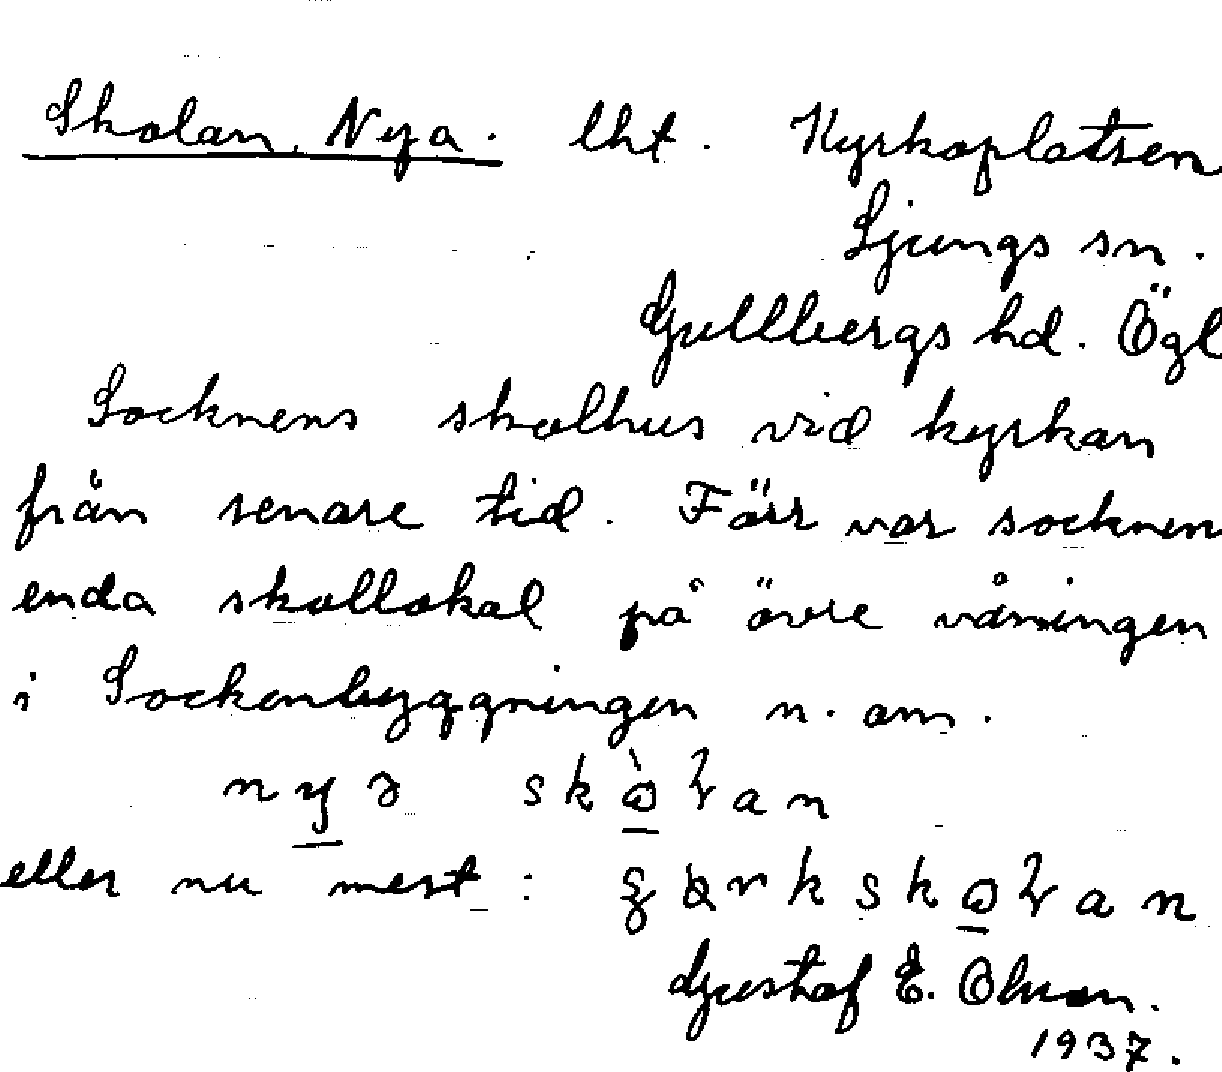 Skolan, Nya. lht. Kyrkoplatsen
Ljungs sn.
Gullbergs hd. Ögl
Socknens skolhus vid kyrkan
från senare tid. Förr var socknen
enda skollokal på övre våningen
i Sockenbyggningen n. om.
nyə skòɷɽan
eller nu mest:
Gustaf E. Olsson.
1937.